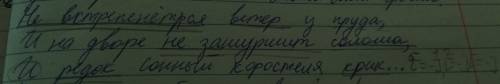 Не встрепенётся ветер у пруда,
И на дворе не зашуршит солома,
И редок сонный коростеля крик...